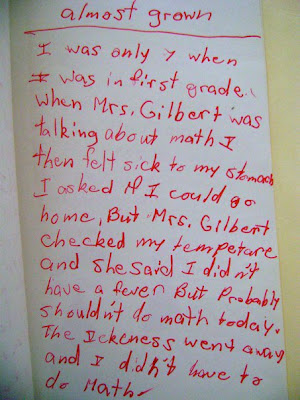 almost grown
I was only 7 when
I was in first grade.
when Mrs. Gilbert was
talking about math I
then felt sick to my stomach
I asked if I could go
home. But Mrs. Gilbert
checked my tempeture
and she said I didn't
have a fever But Probably
shouldn't do math today.
The Ickeness went away
and I didn't have to
do Math.